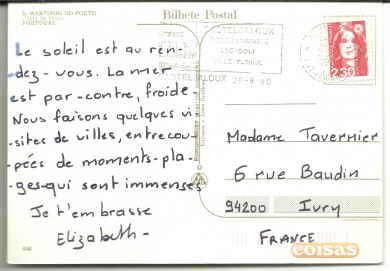 S. MARTINHO DO PORTO
PORTUGAL
Bilhete Postal
CASTELJALOUX
LAC-GOLF
VILLE FLEURIE
CASTELJALOUX 25-8-90
2,30
Le soleil est au ren-
dez-vous. La mer
est par-contre, froide.
Nous faisons quelques vi-
sites de villes, entrecou-
pées de moments-pla-
ges-qui sont immenses
Je t'embrasse
Elizabeth-
Madame Tavernier
6 rue Baudin
94200 Ivry
FRANCE
coisas